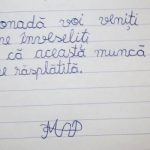 onadă voi veniți
ne înveseliți
că această muncă
e răsplătită.